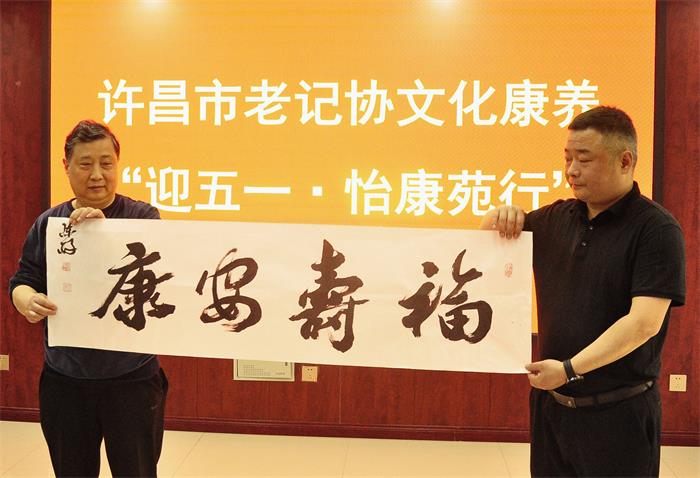 许昌市老记协文化康养
“迎五一·怡康苑行”
福寿安康